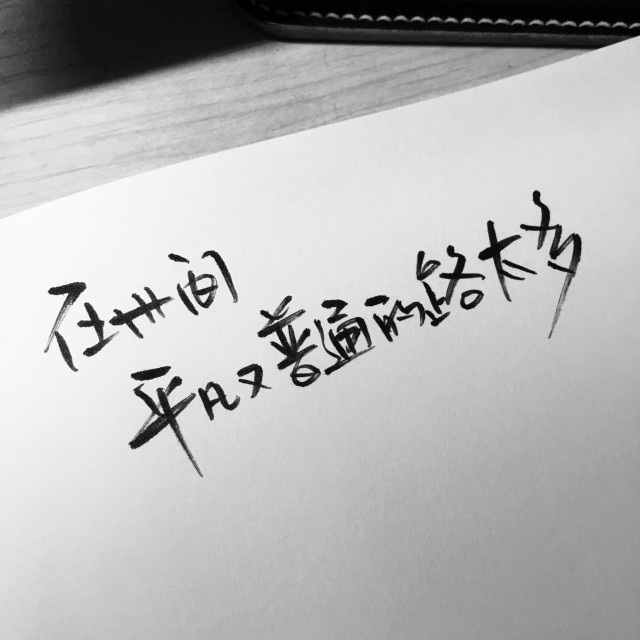 在世间
平凡又普通的路太多